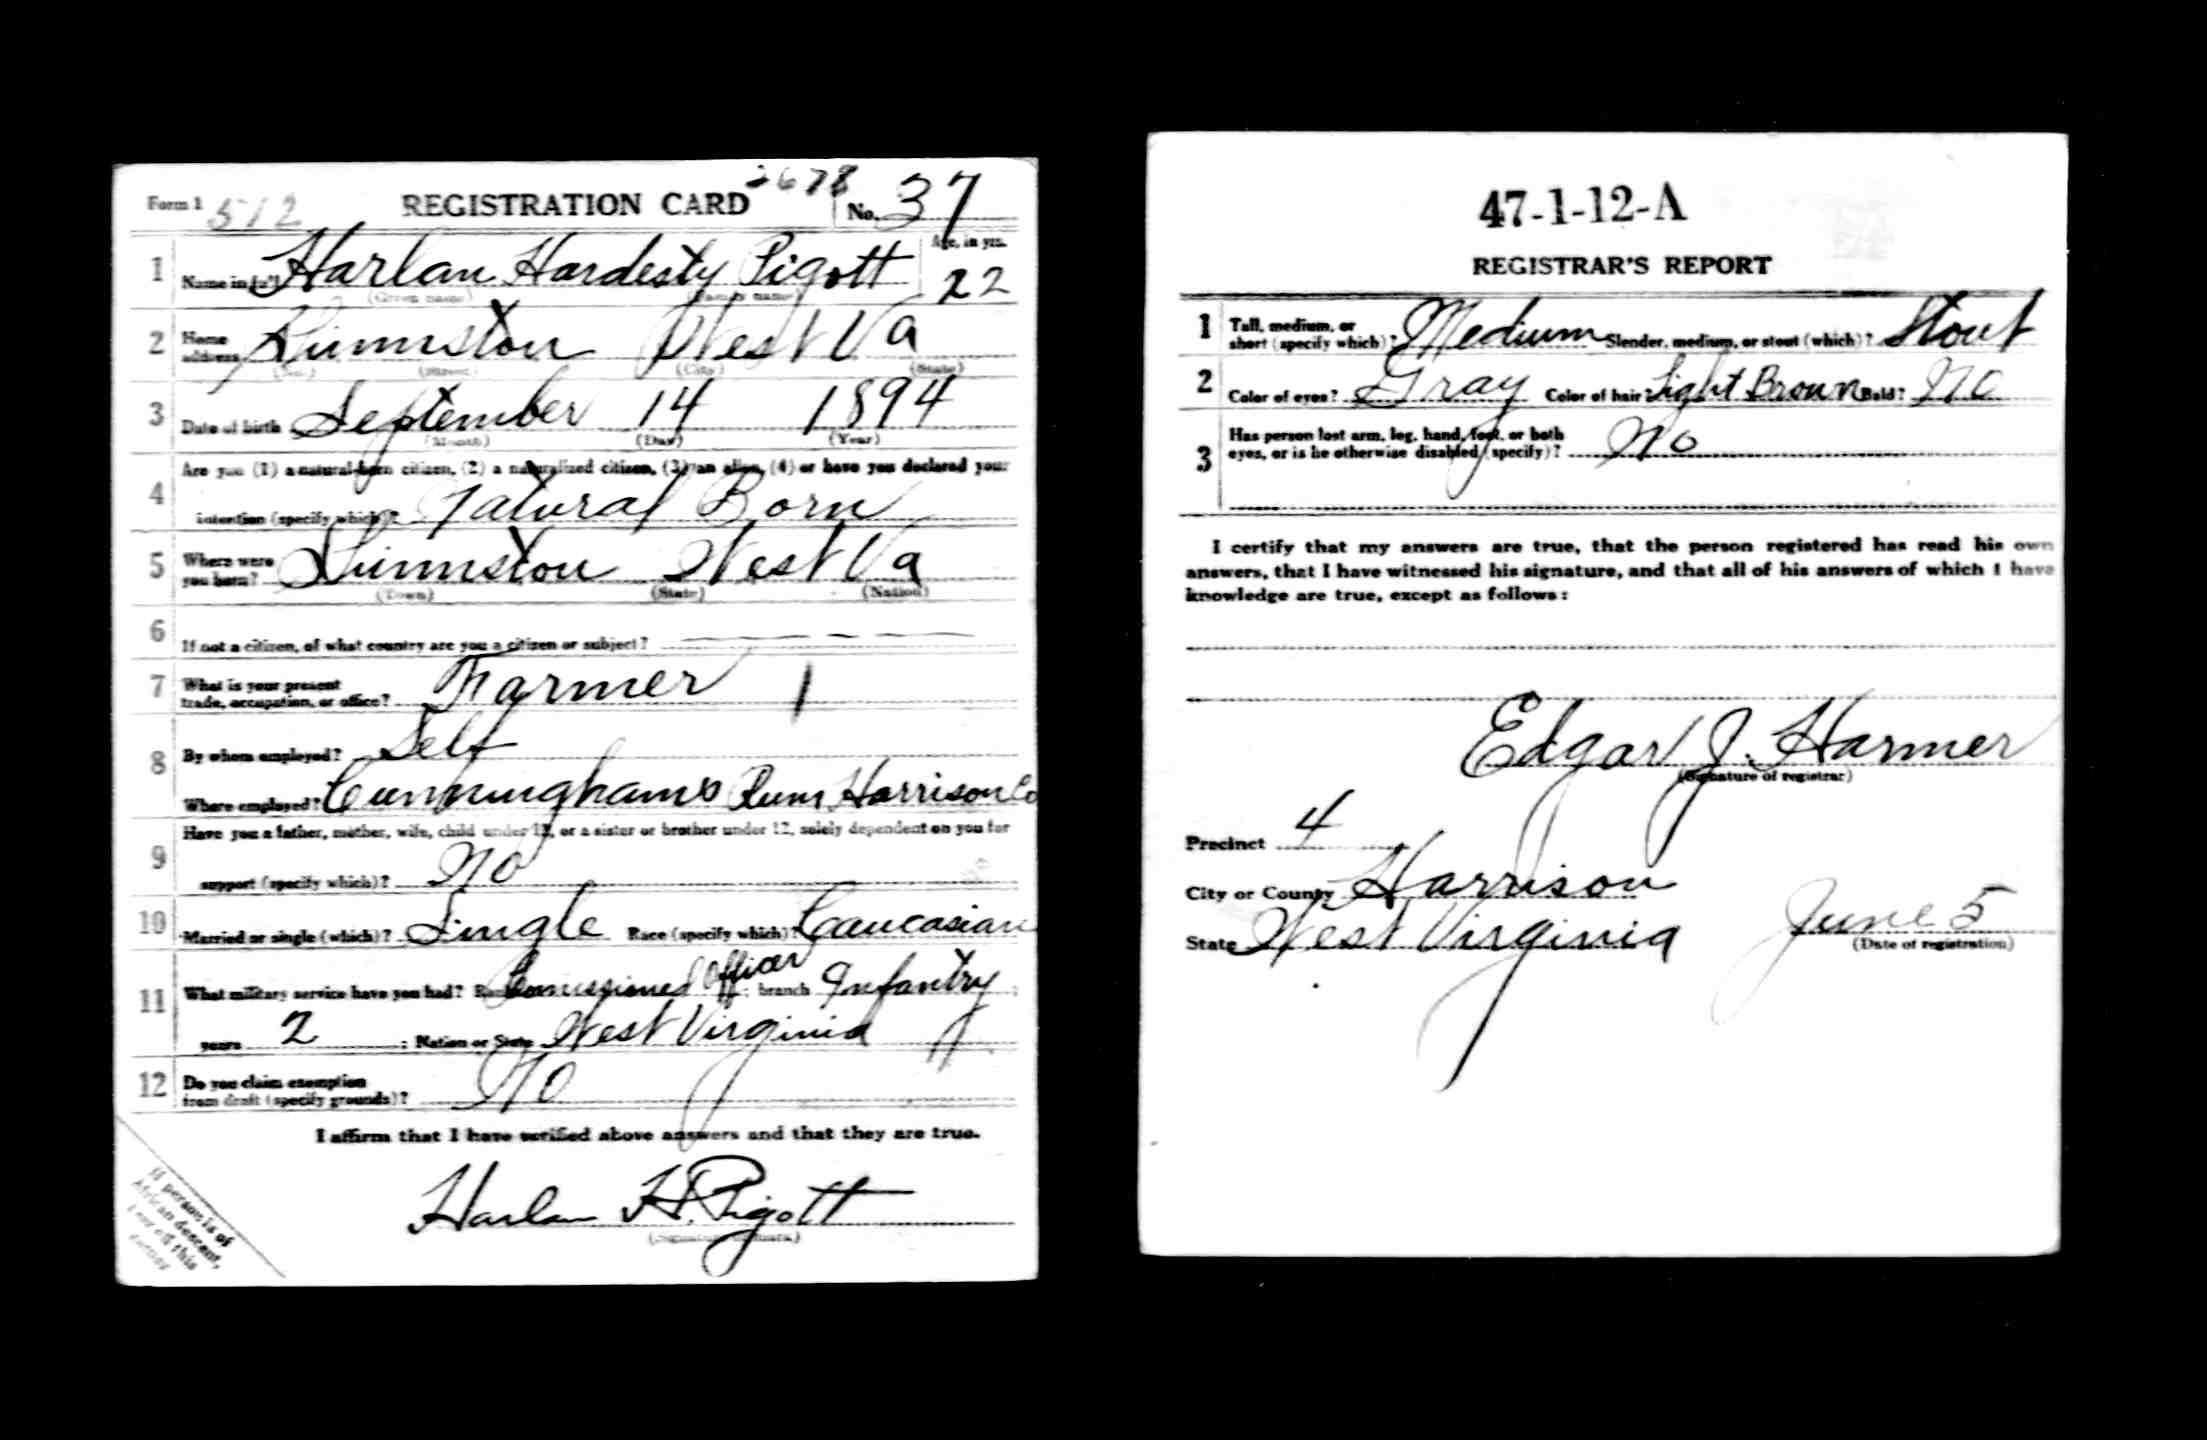 Form 1 512 REGISTRATION CARD 2678 No. 37
1 Name in full Harlan Hardesty Pigott Age, in yrs. 22
(Given name) (Family name)
2 Home address Lumnston West Va
(No.) (Street) (City) (State)
3 Date of birth September 14 1894
(Month) (Day) (Year)
4 Are you (1) a natural-born citizen, (2) a naturalized citizen, (3) an alien, (4) or have you declared your
intention (specify which)? Natural Born
5 Where were you born? Lumnston West Va
(Town) (State) (Nation)
6 If not a citizen, of what country are you a citizen or subject?
7 What is your present trade, occupation, or office? Farmer 1
8 By whom employed? Self
Where employed? Cunninghams Run, Harrison Co
9 Have you a father, mother, wife, child under 12, or a sister or brother under 12, solely dependent on you for
support (specify which)? No
10 Married or single (which)? Single Race (specify which)? Caucasian
11 What military service have you had? Rank Commissioned Officer; branch Infantry;
years 2; Nation or State West Virginia
12 Do you claim exemption from draft (specify grounds)? No
I affirm that I have verified above answers and that they are true.
Harlan H. Pigott
(Signature or mark)
If person is of
African descent,
tear off this
corner
47-1-12-A
REGISTRAR'S REPORT
1 Tall, medium, or short (specify which)? Medium Slender, medium, or stout (which)? Stout
2 Color of eyes? Gray Color of hair? Light Brown Bald? No
3 Has person lost arm, leg, hand, foot, or both
eyes, or is he otherwise disabled (specify)? No
I certify that my answers are true, that the person registered has read his own
answers, that I have witnessed his signature, and that all of his answers of which I have
knowledge are true, except as follows:
Edgar J. Harmer
(Signature of registrar)
Precinct 4
City or County Harrison
State West Virginia June 5
(Date of registration)